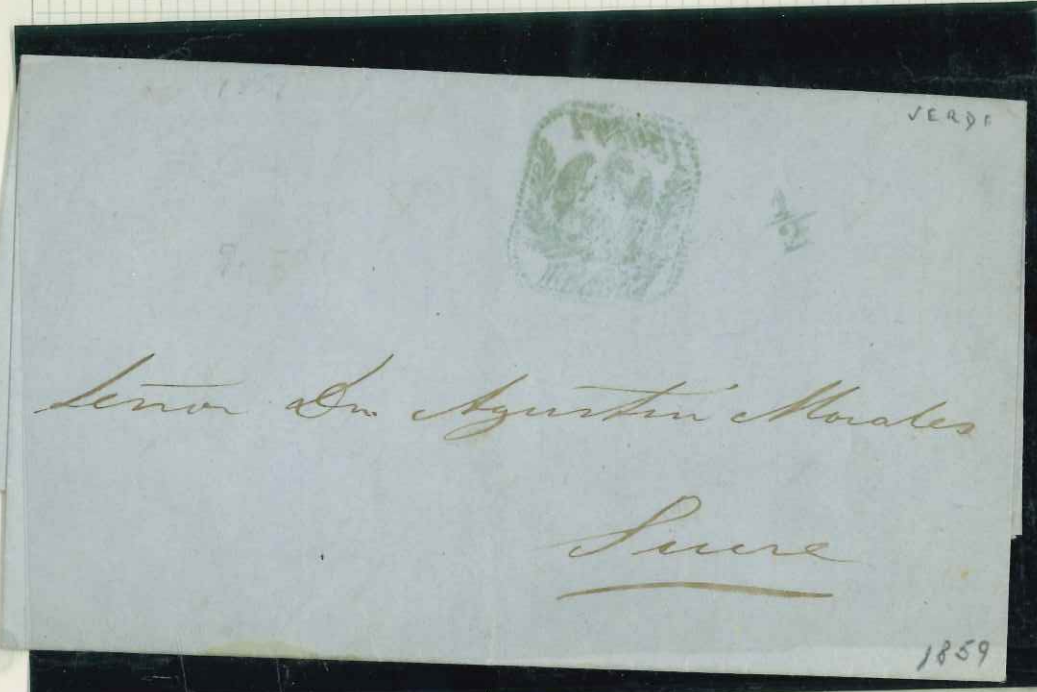 VERDI
1/2
Señor Dn. Agustin Morales
Sucre
1859